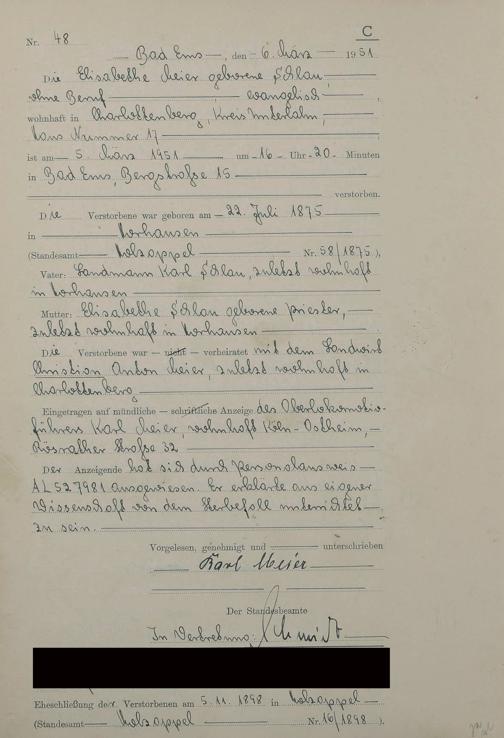 C
Nr. 48
Bad Ems, den 6. März 1951
Die Elisabethe Meier geborene Schlau
ohne Beruf evangelisch,
wohnhaft in Charlottenberg, Kreis Unterlahn,
Haus Nummer 17
ist am 5. März 1951 um 16 Uhr 20 Minuten
in Bad Ems, Bergstraße 15
verstorben.
Die Verstorbene war geboren am 22. Juli 1875
in Horhausen
(Standesamt Holzappel Nr. 58/1875),
Vater: Landmann Karl Schlau, zuletzt wohnhaft
in Horhausen
Mutter: Elisabethe Schlau geborene Priester,
zuletzt wohnhaft in Horhausen
Die Verstorbene war — nicht — verheiratet mit dem Landwirt
Christian Anton Meier, zuletzt wohnhaft in
Charlottenberg
Eingetragen auf mündliche — schriftliche Anzeige des Oberlokomotiv-
führers Karl Meier, wohnhaft Köln-Ostheim,
Rösrather Straße 32
Der Anzeigende hat sich durch Personalausweis
AL 527981 ausgewiesen. Er erklärte aus eigener
Wissenschaft von dem Sterbefall unterrichtet
zu sein.
Vorgelesen, genehmigt und unterschrieben
Karl Meier
Der Standesbeamte
In Vertretung: Schmidt
Eheschließung der Verstorbenen am 5.11.1898 in Holzappel
(Standesamt Holzappel Nr. 16/1898).